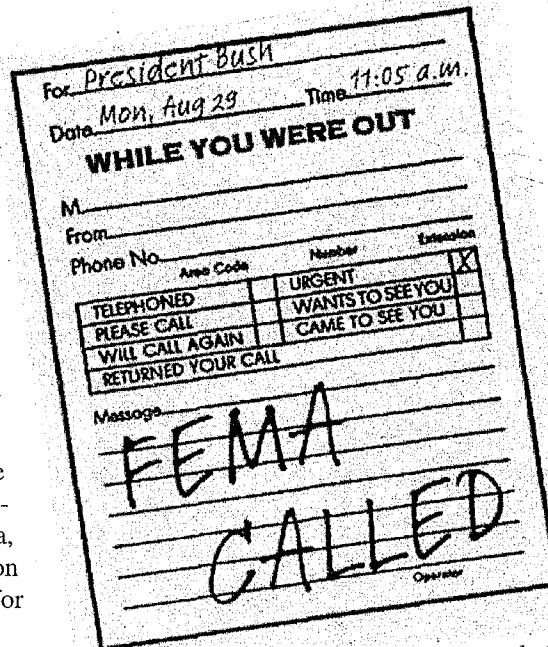 For President Bush
Date Mon, Aug 29 Time 11:05 a.m.
WHILE YOU WERE OUT
M
From
Phone No.
Area Code Number Extension
TELEPHONED URGENT X
PLEASE CALL WANTS TO SEE YOU
WILL CALL AGAIN CAME TO SEE YOU
RETURNED YOUR CALL
Message
FEMA
CALLED
Operator
e
-
a,
on
for